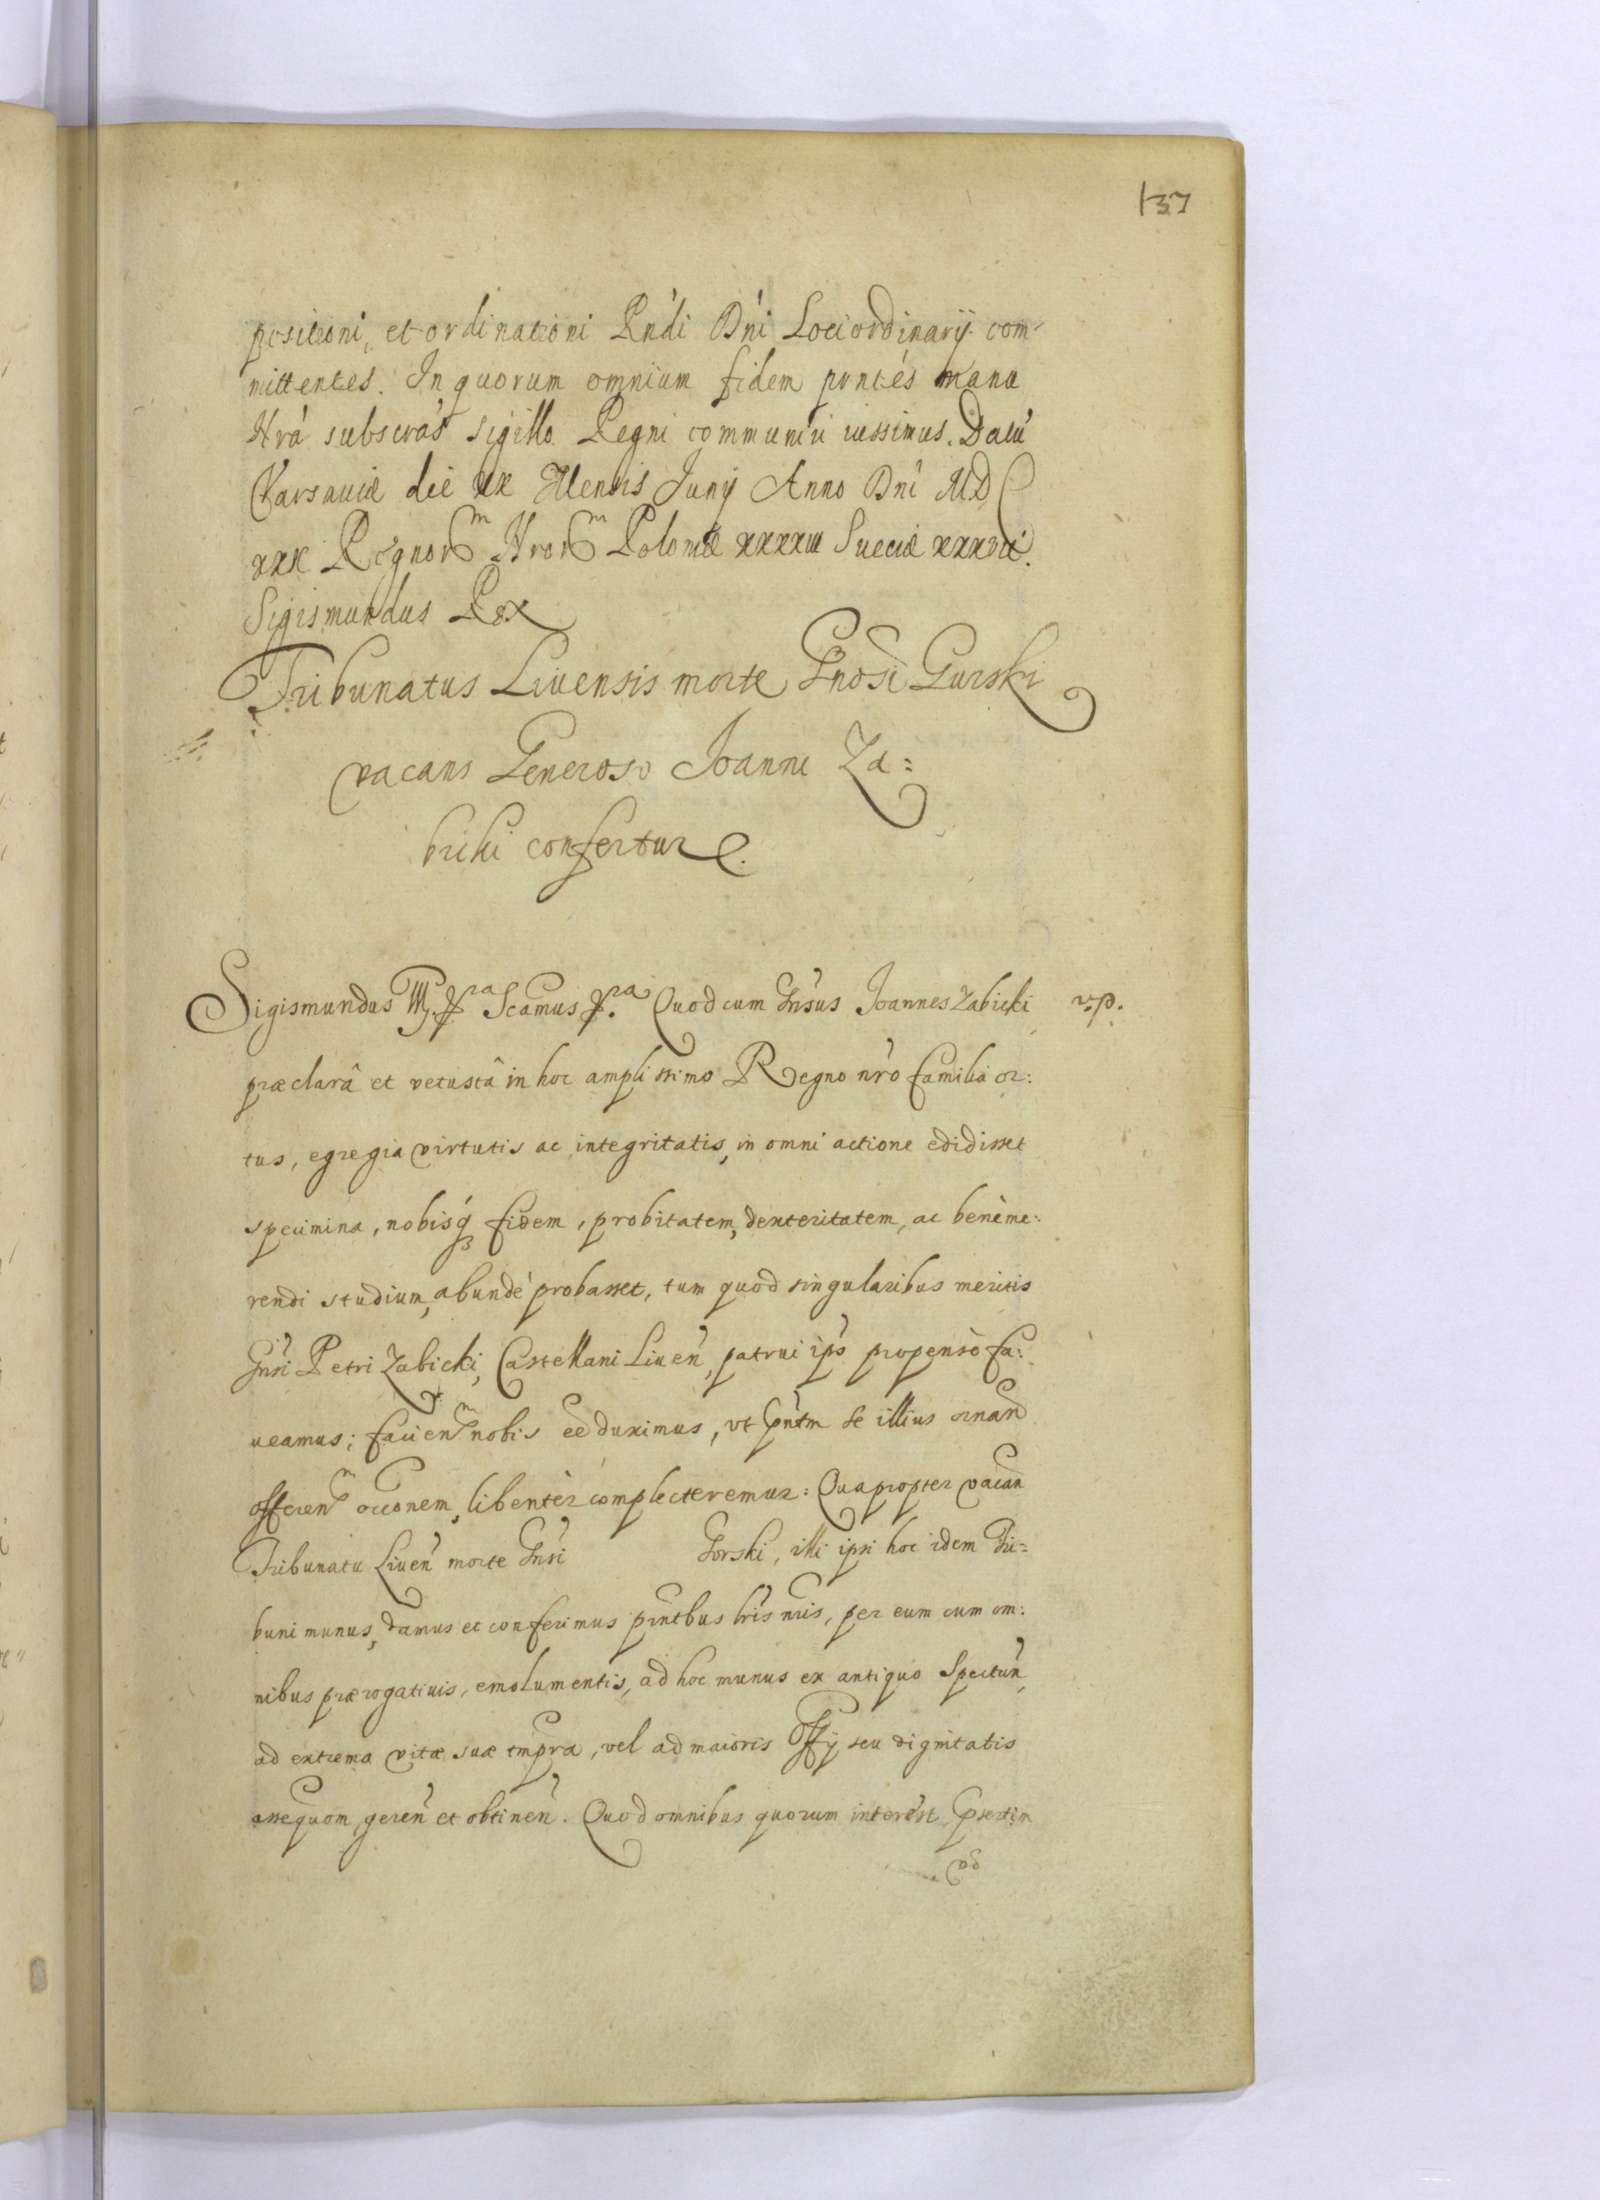 137
positioni, et ordinationi Rndi Dni Loci ordinarij com-
mittentes. In quorum omnium fidem pntes manu
Nra subscras sigillo Regni communiri iussimus. Datu
Varsauiæ die xx Mensis Junij Anno Dni MDC
xxx Regnorm Nrorm Poloniæ xxxxiii Sueciæ xxxvii.
Sigismundus Rex
Tribunatus Liuensis morte Gnosi Gurski
vacans Generoso Joanni Za=
bicki confertur.
Sigismundus III. pra Scamus pra Quod cum Gnsus Joannes Zabicki
v.p.
præclarâ et vetustâ in hoc amplissimo Regno nro familia or:
tus, egregia virtutis ac integritatis, in omni actione edidisset
specimina, nobisq3 fidem, probitatem, dexteritatem, ac benème:
rendi studium, abundè probasset, tum quod singularibus meritis
Gnsi Petri Zabicki, Castellani Liuen, patrui ips propensè fa:
ueamus; facienm nobis ee duximus, vt pntm se illius ornand
offerenm occonem, libentèr complecteremur: Quapropter vacan
Tribunatu Liuen morte Gnsi Gorski, illi ipsi hoc idem Tri=
buni munus, damus et conferimus pntbus lris nris, per eum cum om:
nibus prærogatiuis, emolumentis, ad hoc munus ex antiquo Spectan,
ad extrema vitæ suæ tmpra, vel ad maioris Offij seu dignitatis
assequom, geren et obtinen. Quod omnibus quorum interest, psertim
vd